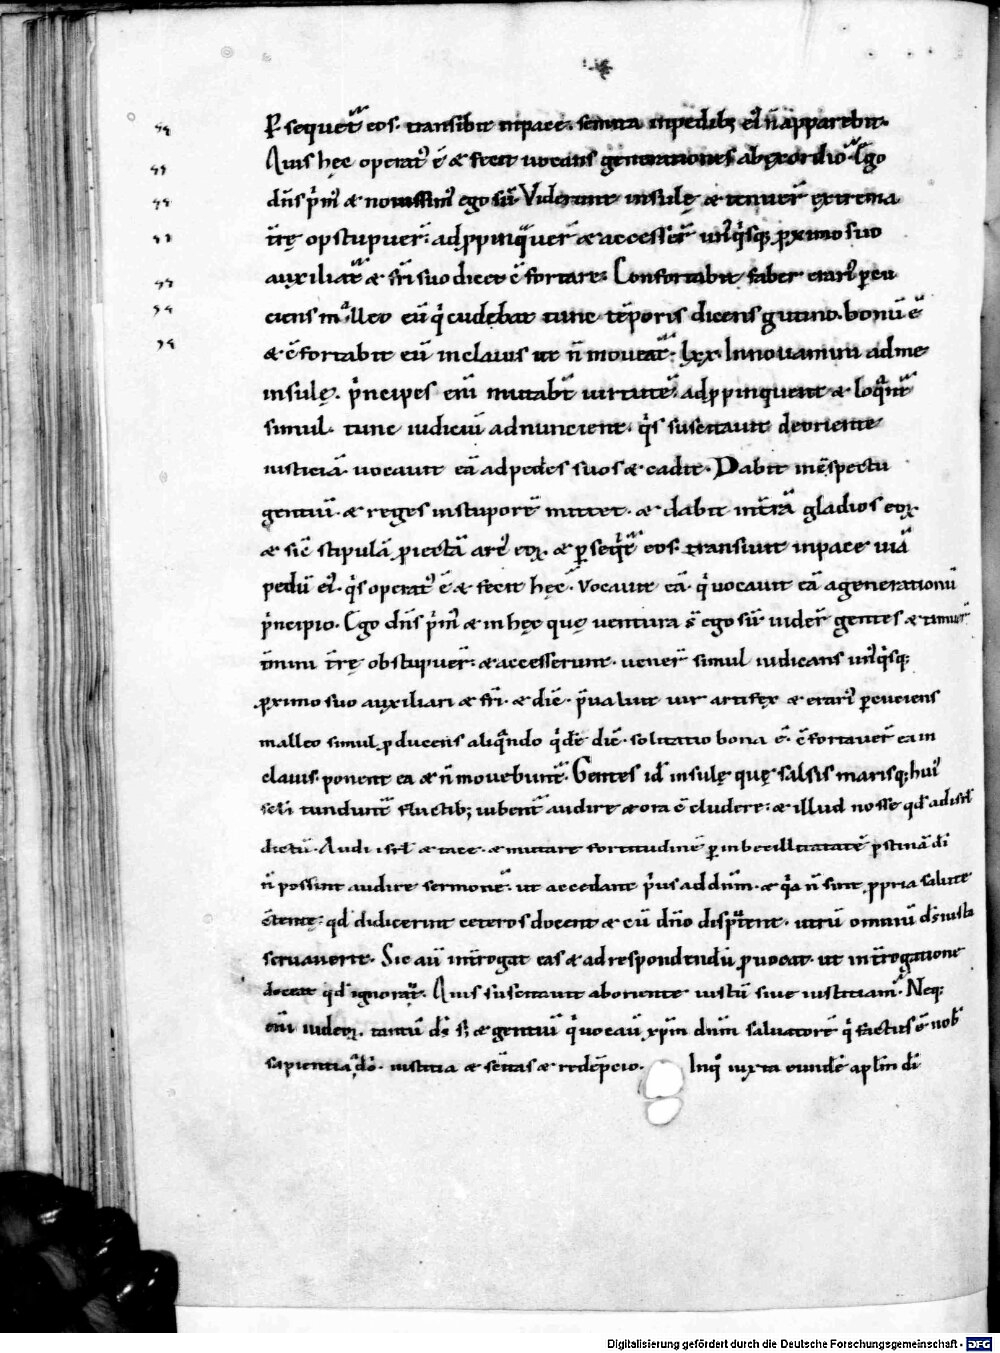 Ꝑsequet᷑ eos. transibit inpace. semita inpedib; ei᷒ n̄ apparebit.
Quis hęc operat᷒ ē & fecit uocans generationes abexordio. Ego
dn̄s p̍m᷒ & nouissim᷒ ego sū. Viderunt insulę & timuer̄ extrema
t̄rę opstupuer̄. adꝓpinquauer̄ & accesser̄ unq̍sq; ꝓximo suo
auxiliat᷑ & fr̄i suo dicet c̄fortare. Confortabit faber erari᷒ ꝑcu
ciens malleo eū q̍ cudebat tunc tēporis dicens glutino. bonū ē
& c̄fortabit eū inclauis ut n̄ moueat᷑. lxx. Innouamini adme
insulę. p̍ncipes eni mutabt̄ uirtutē. adꝓpinquent & loqnt᷑
simul. tunc iudiciū adnuncient. q̍s suscitauit deoriente
iusticiā uocauit eā adpedes suos & eadit. Dabit inc̄spectu
gentiū. & reges instuporē mittet. & dabit int̄rā gladios eoꝝ
& sic̄ stipulā ꝓiectā arc᷒ eoꝝ. & ꝑseq̍t᷑ eos. transiuit inpace uiā
pedū ei᷒. q̍s operat᷒ ē & fecit hęc. Vocauit eā. q̍ uocauit eā agenerationū
p̍ncipio. Ego dn̄s p̍m᷒ & in hęc quę uentura s̄ ego sū. uider̄ gentes & timuer̄
t̄mini t̄rę obstupuer̄. & accesserunt. uener̄ simul iudicans unq̍sq;
ꝓximo suo auxiliari & fr̄i. & dic̄. p̄ualuit uir artifex & erari᷒ ꝑcuciens
malleo simul ꝓducens aliqndo q̍dē dic̄. solutatio bona ē. c̄fortauer̄ ea in
clauis. ponent ea & n̄ mouebunt᷑. Gentes id̄ insulę quę salsis marisq; hui᷒
scl̄i tundunt᷑ fluctib; iubent᷑ audire & ora c̄cludere. & illud nosse qd̄ adisrl̄
dictū. Audi isrl̄ & tace. & mutare fortitudinē ꝑ inbecillitatatē pstinā di
n̄ possint audire sermonē. ut accedant p̍us addn̄m. & q̍a n̄ sint ꝓpria salute
c̄tente. qd̄ didicerint ceteros docent & cū dn̄o disputent. utrū omniū ds̄ iusta
seruauerit. Sic aū int̄rogat eas & adrespondendū ꝓuocat. ut int̄rogatione
doceat qd̄ ignorat᷑. Quis suscitauit aboriente iustū siue iustitiam. Neq;
eni iudeoꝝ. tantū ds̄ s; & gentiū q̍ uocauit xp̄m dn̄m saluatorē q̍ factus ē nob̄
sapientia a do. iustitia & sc̄itas & redēpcio. Inq iuxta eundē aplm di
Digitalisierung gefördert durch die Deutsche Forschungsgemeinschaft - DFG